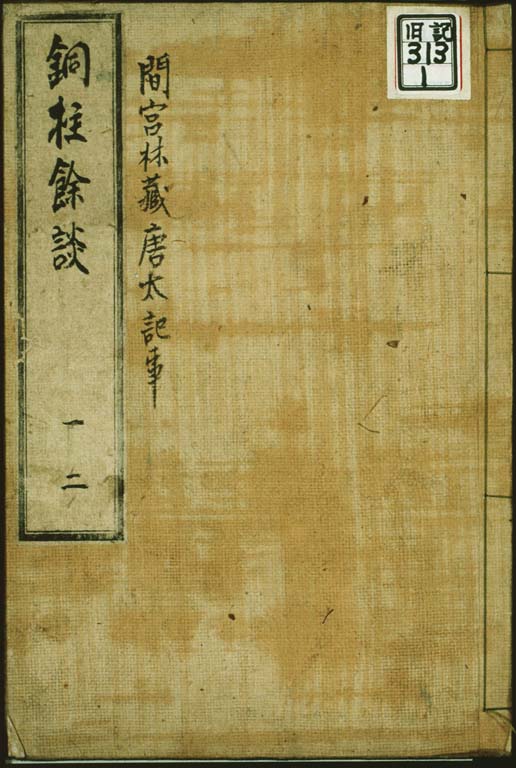 旧記
313
1
間宮林藏唐太記事
銅柱餘談
一二